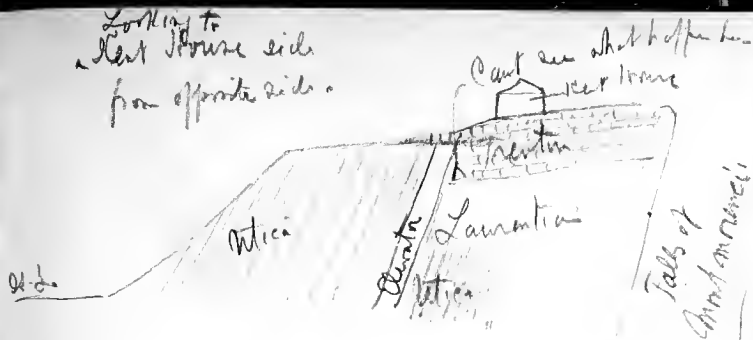 Looking to
Kent House side
from opposite side.
Can't see what happen here
Kent House
Trenton
Utica
Elevator
Laurentian
Utica
Falls of
Montmorenci